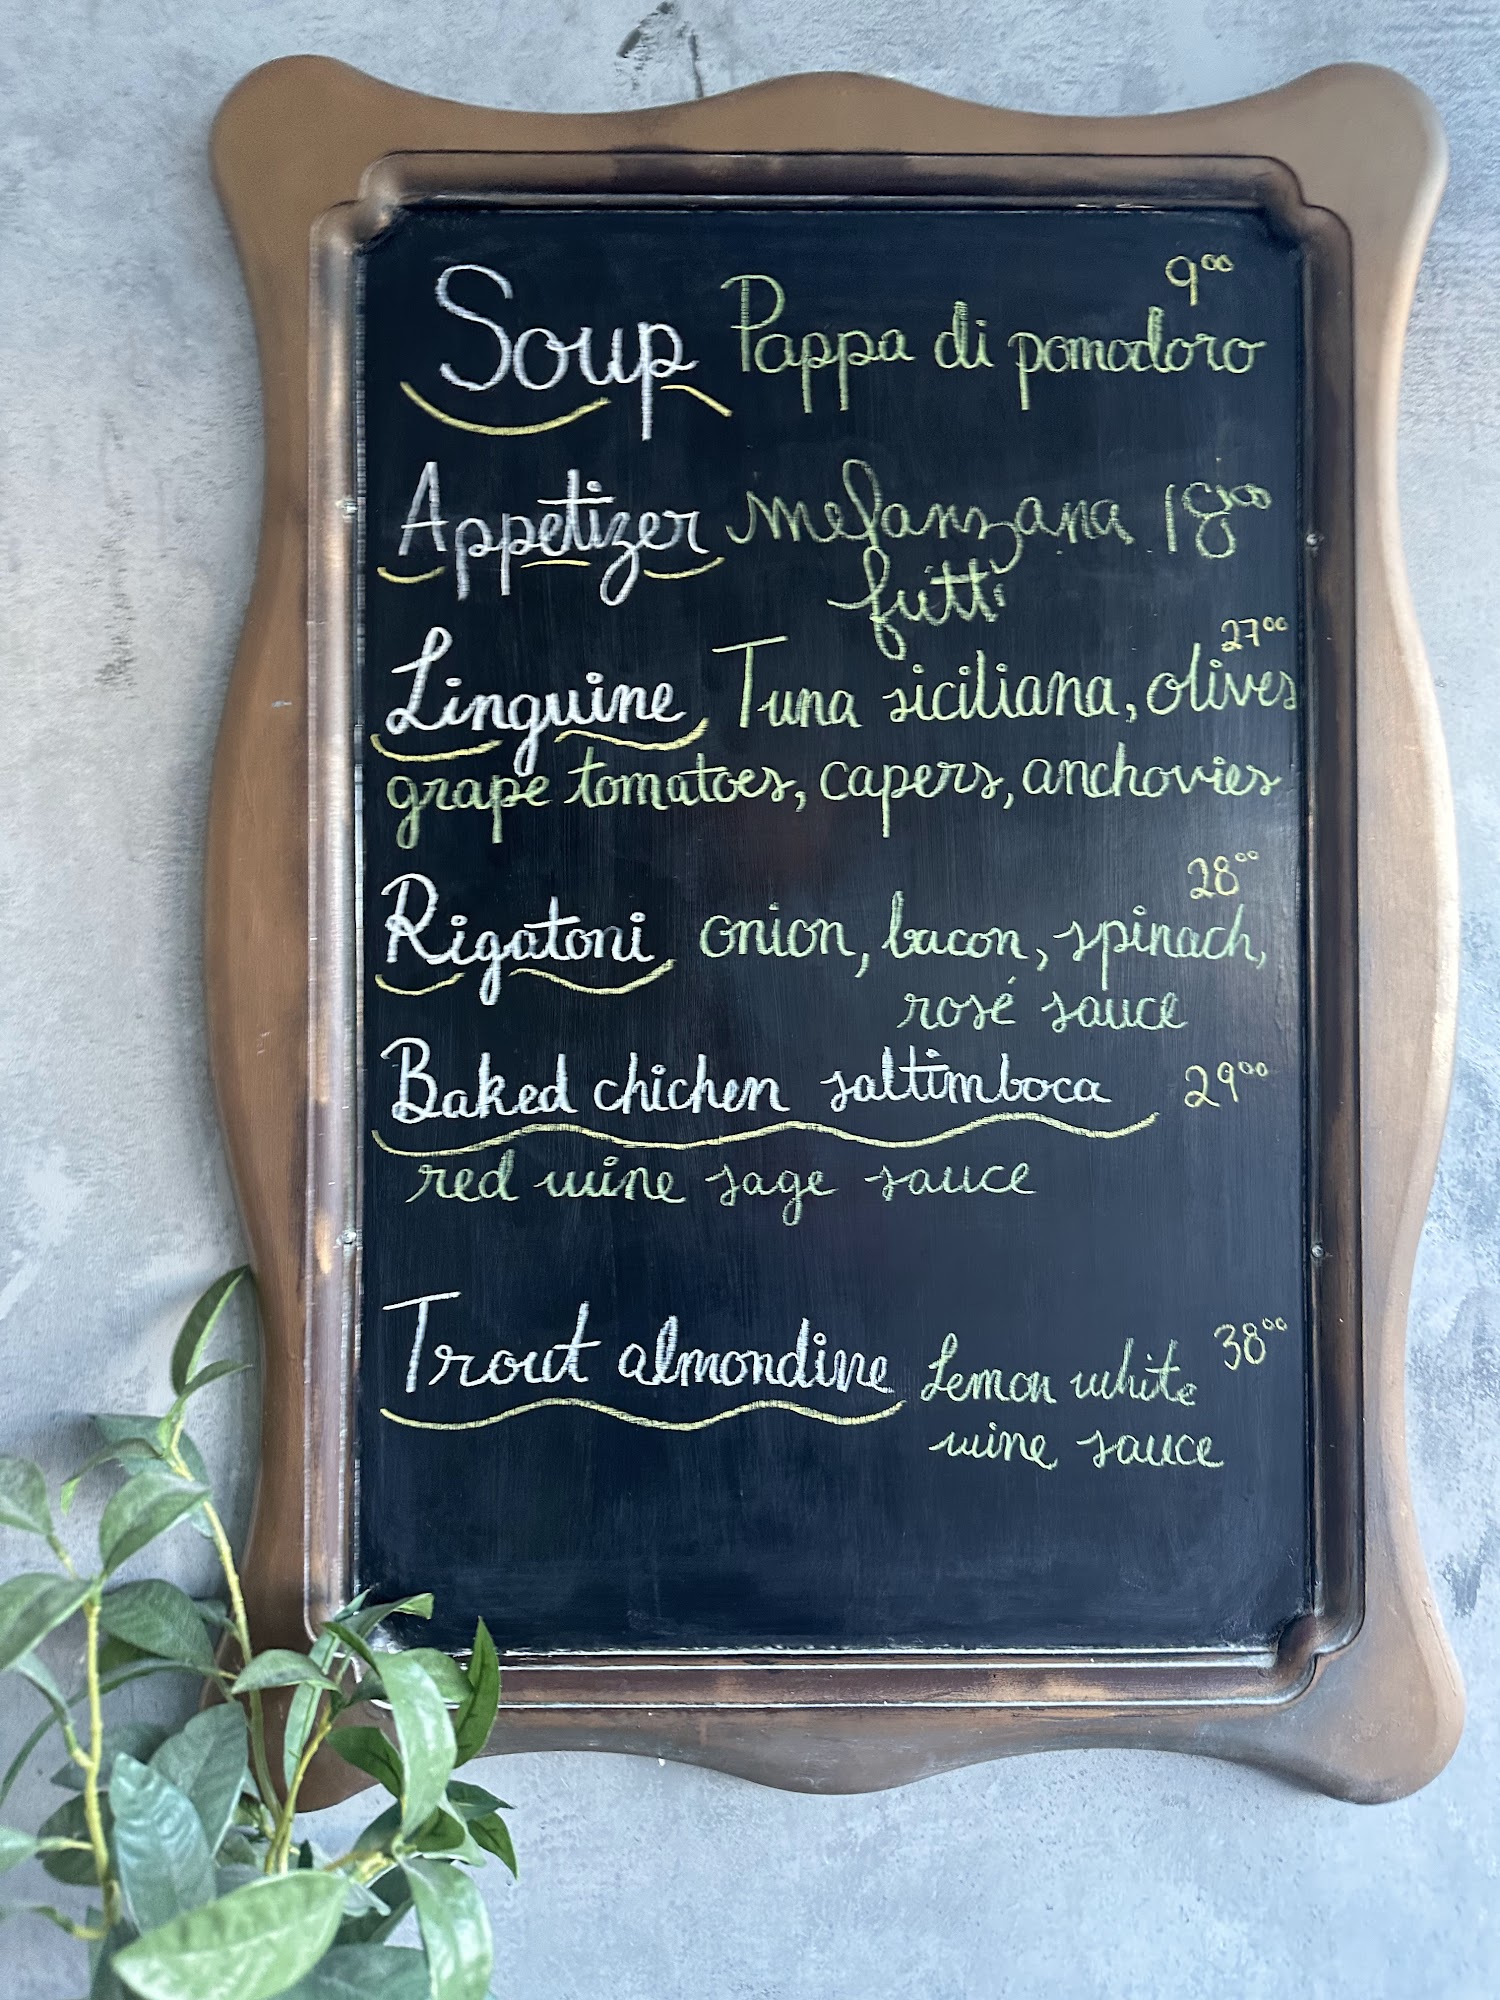 9⁰⁰
Soup Pappa di pomodoro
Appetizer melanzana 18⁰⁰
fritti
27⁰⁰
Linguine Tuna siciliana, olives
grape tomatoes, capers, anchovies
28⁰⁰
Rigatoni onion, bacon, spinach,
rosé sauce
Baked chichen saltimboca 29⁰⁰
red wine sage sauce
Trout almondine Lemon white 38⁰⁰
wine sauce